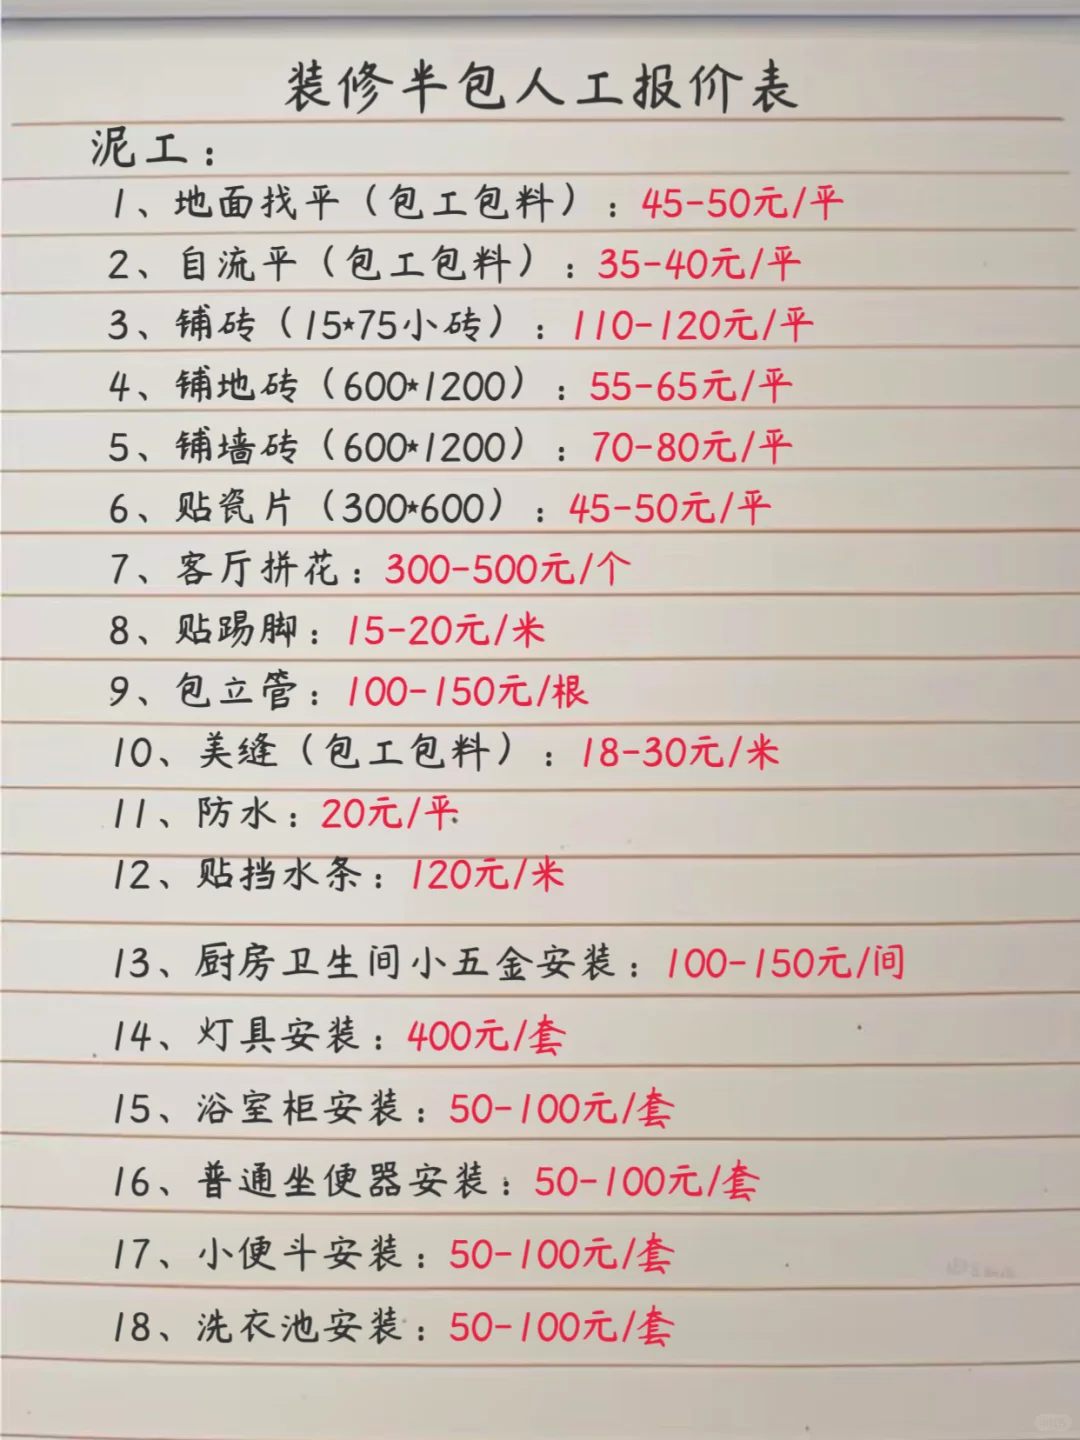 装修半包人工报价表
泥工：
1、地面找平（包工包料）：45-50元/平
2、自流平（包工包料）：35-40元/平
3、铺砖（15*75小砖）：110-120元/平
4、铺地砖（600*1200）：55-65元/平
5、铺墙砖（600*1200）：70-80元/平
6、贴瓷片（300*600）：45-50元/平
7、客厅拼花：300-500元/个
8、贴踢脚：15-20元/米
9、包立管：100-150元/根
10、美缝（包工包料）：18-30元/米
11、防水：20元/平
12、贴挡水条：120元/米
13、厨房卫生间小五金安装：100-150元/间
14、灯具安装：400元/套
15、浴室柜安装：50-100元/套
16、普通坐便器安装：50-100元/套
17、小便斗安装：50-100元/套
18、洗衣池安装：50-100元/套